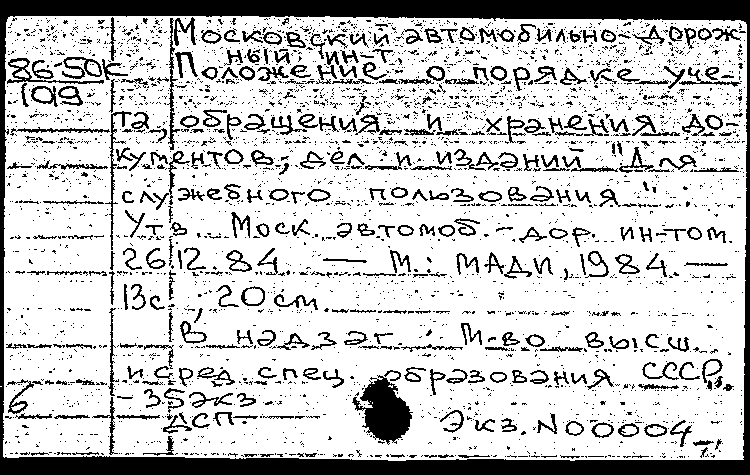 Московский автомобильно-дорож-
ный ин-т.
86-50К Положение о порядке уче-
1019
та, обращения и хранения до-
кументов, дел и изданий "Для
служебного пользования":
Утв. Моск. автомоб.-дор. ин-том
26.12.84. — М.: МАДИ, 1984. —
13с.; 20см.
В надзаг.: М-во высш.
и сред. спец. образования СССР.
6 -35экз.
ДСП.
Экз. №00004